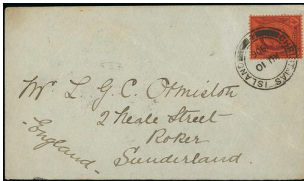 CHRISTMAS ISLAND
Mr L. G. C. Ormiston
2 Neale Street
Roker
Sunderland.
England